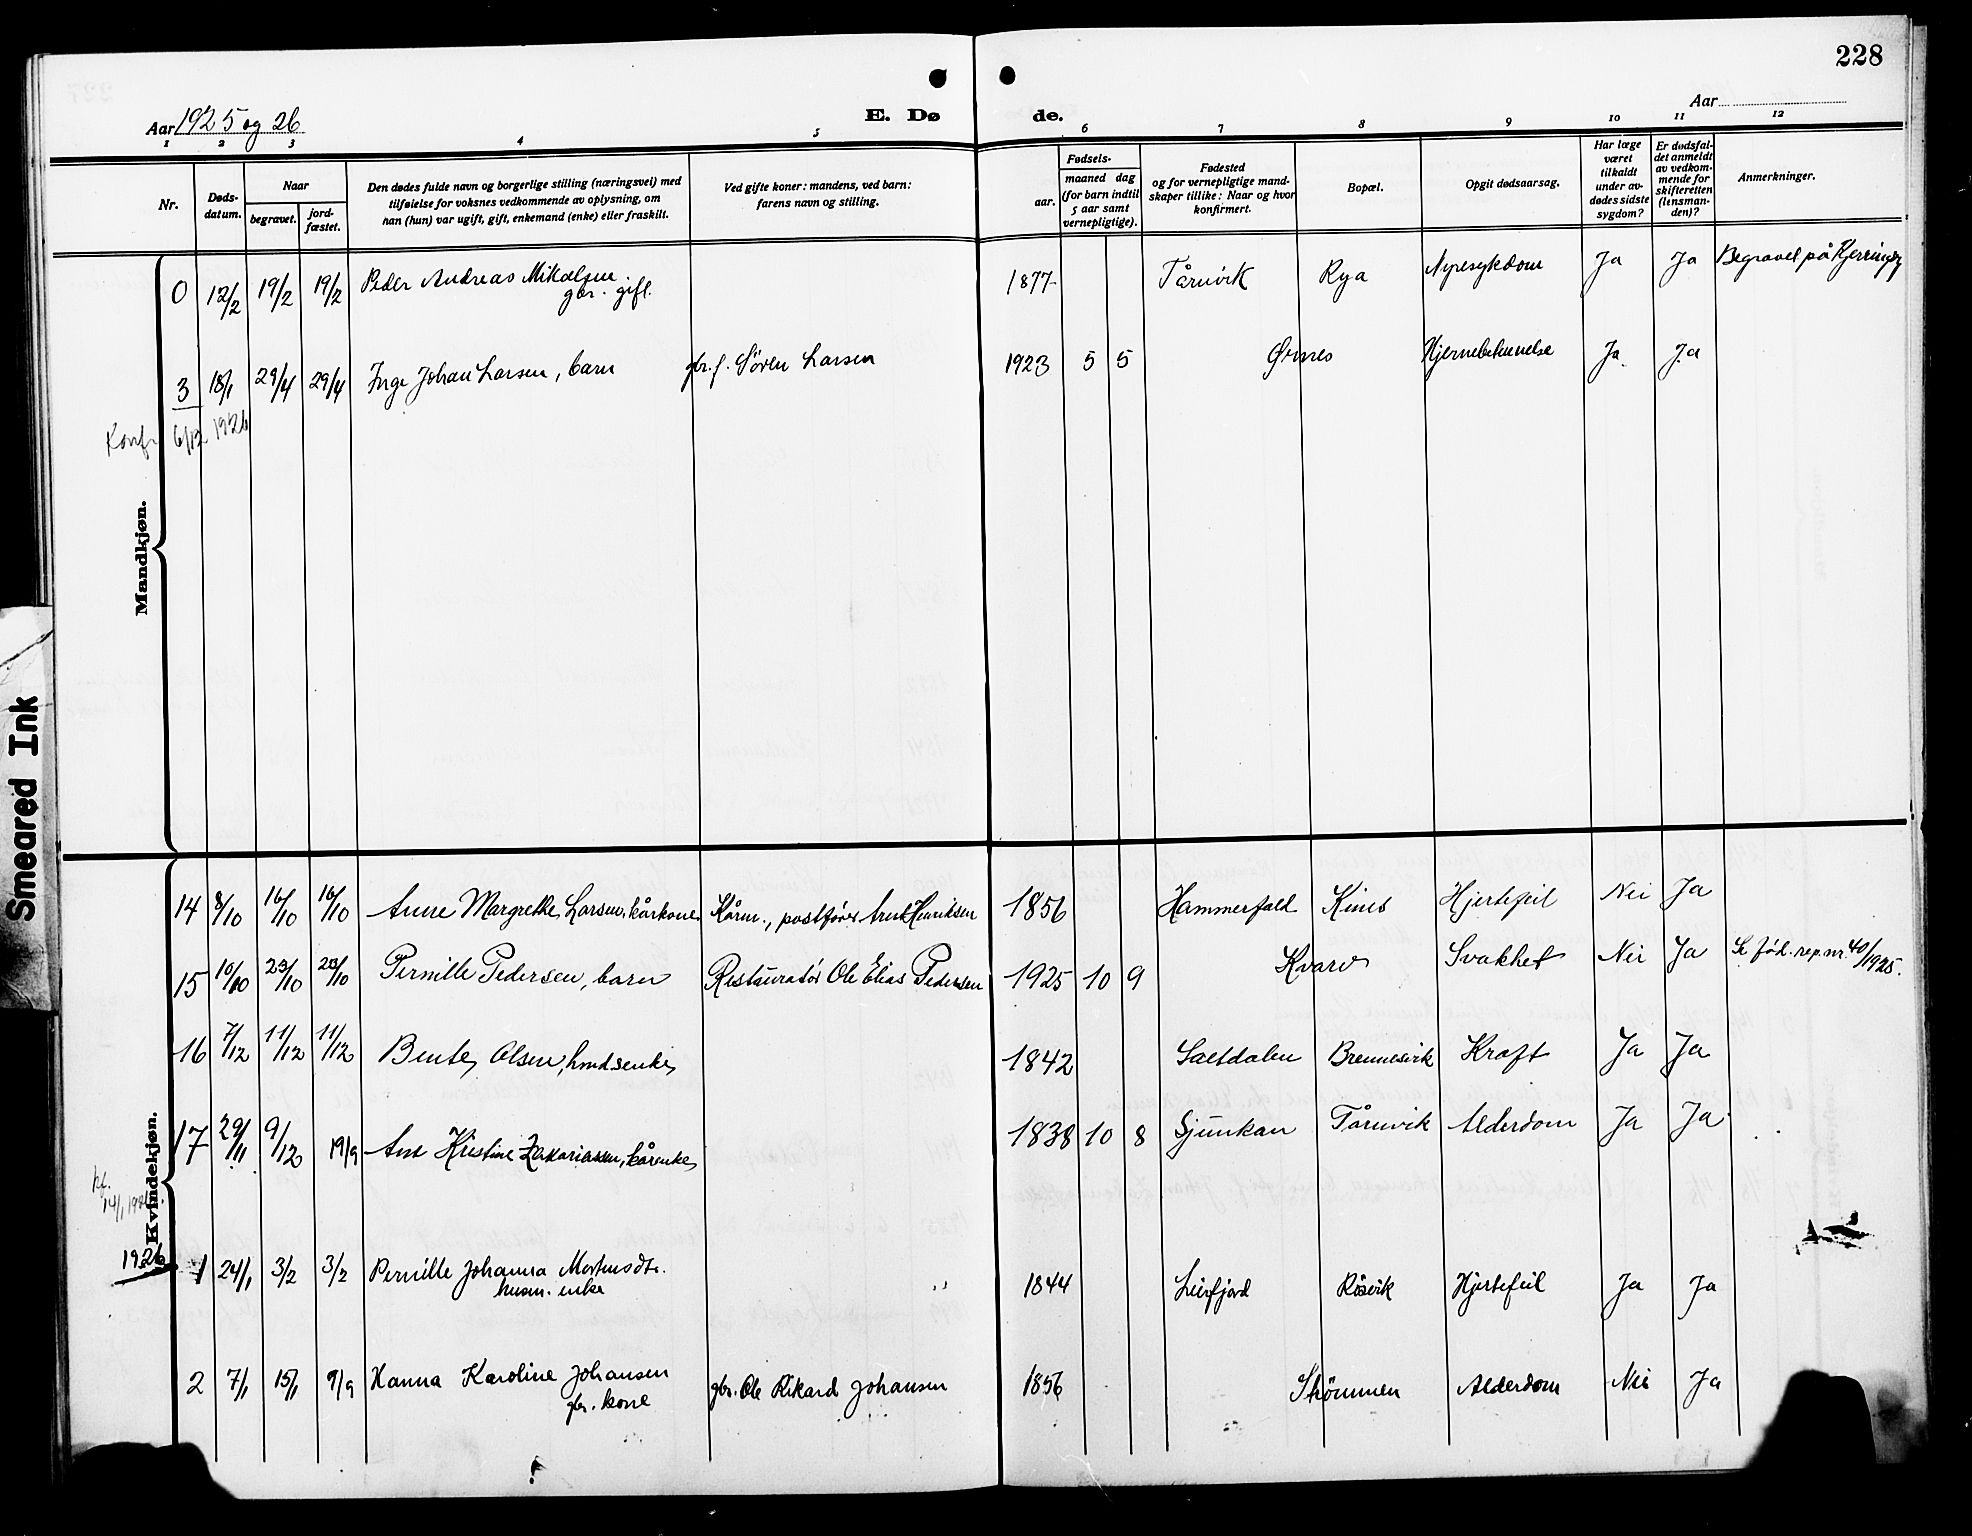 228
Aar 1925 og 26
E. Dø de.
Aar
1 2 3 4 5 6 7 8 9 10 11 12
Nr.
Døds-
datum.
Naar
begravet.
jord-
fæstet.
Den dødes fulde navn og borgerlige stilling (næringsvei) med
tilføielse for voksnes vedkommende av oplysning, om
han (hun) var ugift, gift, enkemand (enke) eller fraskilt.
Ved gifte koner: mandens, ved barn:
farens navn og stilling.
Fødsels-
aar.
maaned dag
(for barn indtil
5 aar samt
vernepligtige).
Fødested
og for vernepligtige mand-
skaper tillike: Naar og hvor
konfirmert.
Bopæl.
Opgit dødsaarsag.
Har læge
været
tilkaldt
under av-
dødes sidste
sygdom?
Er dødsfal-
det anmeldt
av vedkom-
mende for
skifteretten
(lensman-
den)?
Anmerkninger.
Mandkjøn.
0 12/2 19/2 19/2 Peder Andreas Mikalsen 1877 Tårnvik Rya Nyresykdom Ja Ja Begravet på Kjerringøy
gbr. gift.
3 18/1 29/4 29/4 Inge Johan Larsen, barn gbr.f. Søren Larsen 1923 5 5 Ørnes Hjernebetennelse Ja Ja
Konf. 6/12 1926
Kvindekjøn.
14 8/10 16/10 16/10 Anne Margrethe Larsen, kårkone Kårm., postfører Arnt Henriksen 1856 Hammerfald Kines Hjertefeil Nei Ja
15 10/10 23/10 23/10 Pernille Pedersen, barn Restauratør Ole Elias Pedersen 1925 10 9 Kvarv Svakhet Nei Ja Se fød.rep.nr. 40/1925.
16 7/12 11/12 11/12 Bente Olsen, hmdsenke 1842 Saltdalen Brennesvik Kræft Ja Ja
17 29/11 9/12 19/9 Ane Kristine Zakariassen, kårenke 1838 10 8 Sjunkan Tårnvik Alderdom Ja Ja
kf.
14/1 1926
1926
1 24/1 3/2 3/2 Pernille Johanna Mortensdtr. 1844 Leirfjord Røsvik Hjertefeil Ja Ja
husm. enke
2 7/1 15/1 9/9 Hanna Karoline Johansen gbr. Ole Rikard Johansen 1856 Strømmen Alderdom Nei Ja
gbr. kone
Smeared Ink